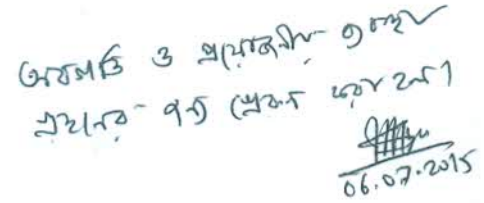 অবগতি ও প্রয়োজনীয় ব্যবস্থা
গ্রহনের জন্য প্রেরন করা হল।
06.07.2015